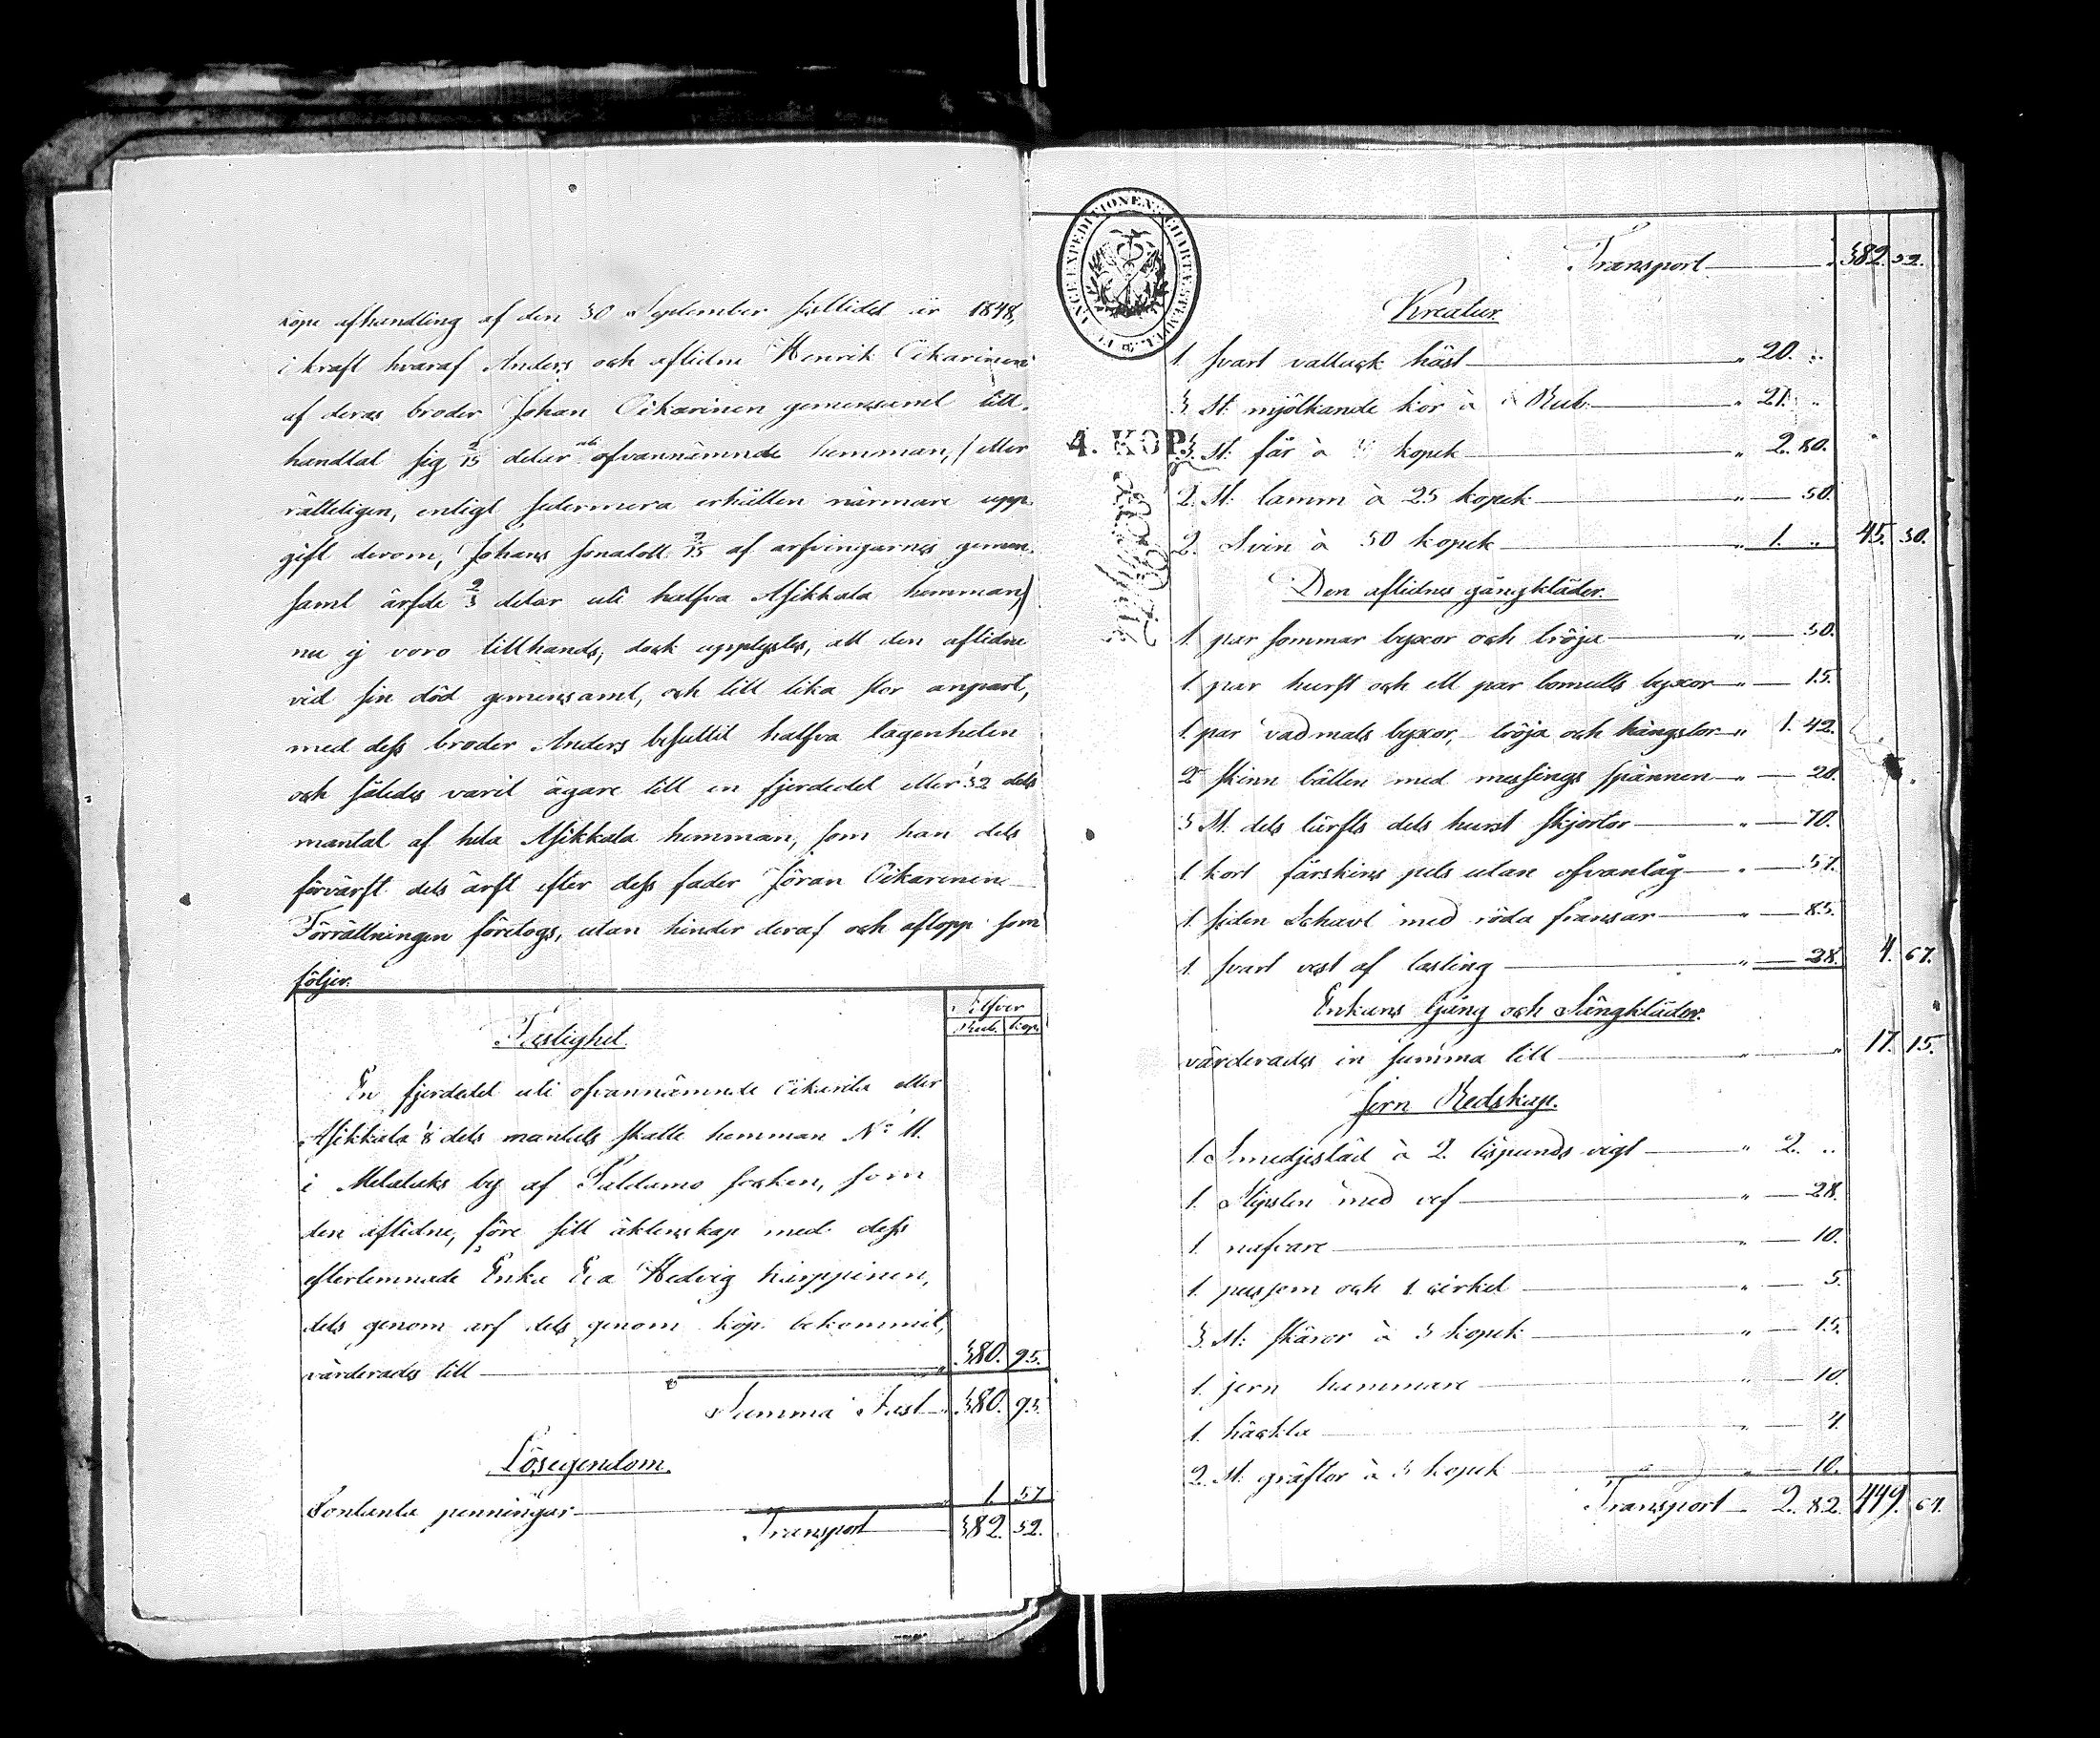 köpe afhandling af den 30 September sistlidet år 1848,
i kraft hvaraf Anders och aflidne Henrik Oikarinen
af deras broder Johan Oikarinen gemensamt till-
handlat sig 2/15 delar uti ofvannämnde hemman, (eller
rätteligen, enligt sedermera erhållen närmare upp-
gift derom, Johans sonalott 2/15 af arfvingarnes gemen-
samt ärfde 2/3 delar uti halfva Asikkala hemman,)
nu ej voro tillhands, dock upplystes, att den aflidne
vid sin död gemensamt, och till lika stor anpart,
med dess broder Anders besuttit halfva lägenheten
och således varit ägare till en fjerdedel eller 1/32 dels
mantal af hela Asikkala hemman, som han dels
förvärft dels ärft efter dess fader Jöran Oikarinen
Förrättningen företogs, utan hinder deraf och aflopp som
följer.
Silfver
Rub. Kop.
Fastighet.
En fjerdedel uti ofvannämnde Oikarila eller
Asikkala 1/8 dels mantals skatte hemman No 11.
i Melalaks by af Paldamo socken, som
den aflidne, före sitt äktenskap med dess
efterlemnade Enka Eva Hedvig Karppinen,
dels genom arf dels genom köp bekommit,
värderades till " 380. 95.
Summa Fast " 380. 95.
Lösegendom.
Contanta penningar " 1. 57
Transport 382. 52.
FINANCE EXPEDITIONENS CHARTÆ STÆMPEL
4. KOP.
Transport " 382. 52.
Kreatur.
1. svart vallack häst " 20. "
3. st: mjölkande kor à Rub. " 21. "
st: får à kopek " 2. 80.
2. st. lamm à 25 kopek " — 50.
2. Svin à 50 kopek " 1. " 45. 30.
Den aflidnes gångkläder.
1. par sommar byxor och tröja " — 50.
1. par hurst och ett par bomulls byxor " — 15.
1. par vadmals byxor, tröja och hängslor " 1. 42.
2 skinn bälten med messings spännen " — 20.
5 st: dels lärfts dels hurst skjortor " — 70.
1. kort fårskins pels utan ofvantåg " — 57.
1. siden Schavl med röda fransar " — 85.
1. svart vest af lasting " — 28. 4. 67.
Enkans Gång och Sängkläder.
värderades in summa till " " 17. 15.
Jern Redskap.
1. Smedjestäd à 2. lispunds vigt " 2. "
1. Slipsten med vef " — 28.
1. nafvare " — 10.
1. passom och 1 cirkel " — 5.
3. st: skäror à 5 kopek " — 15.
1. jern hammare " — 10.
1. häckla " — 4.
2. st: gräftor à 5 kopek " — 10.
Transport 2. 82. 449. 64.